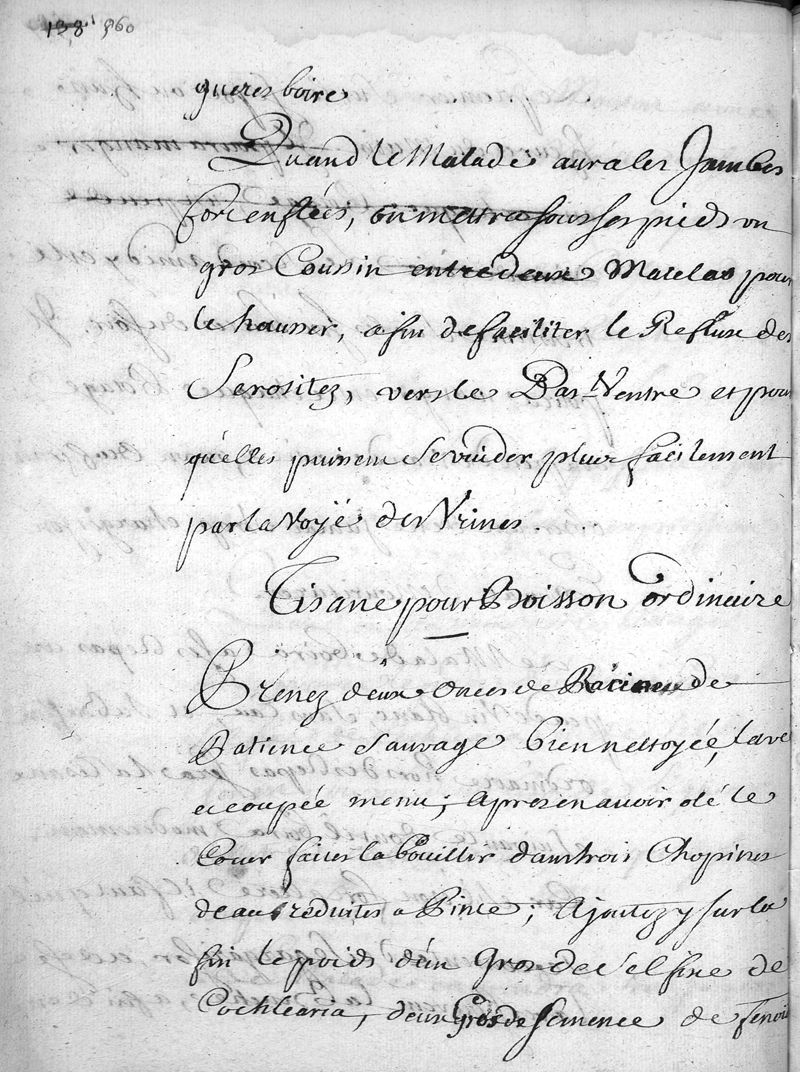 138 560
gueres boire
Quand le Malade aura les Jambes
fort enflées, on mettra sous ses pieds un
gros Coussin entre deux Matelas pour
le hausser, afin de faciliter le Reflux des
Serositez, vers le Bas-Ventre et pour
qu'elles puissent se vuider plus facilement
par la Voye des Vrines.
Tisane pour Boisson Ordinaire
Prenez deux Onces de Racines de
Patience Sauvage bien nettoyée, lavé
et coupée menu; Apres en avoir oté le
Coeur faites la boüillir dans trois Chopines
deau réduites a Pinte; Ajoutez y sur la
fin le poids d'un Gros de Sel fixe de
Cochlearia, deux Gros de Semence de fenoüi